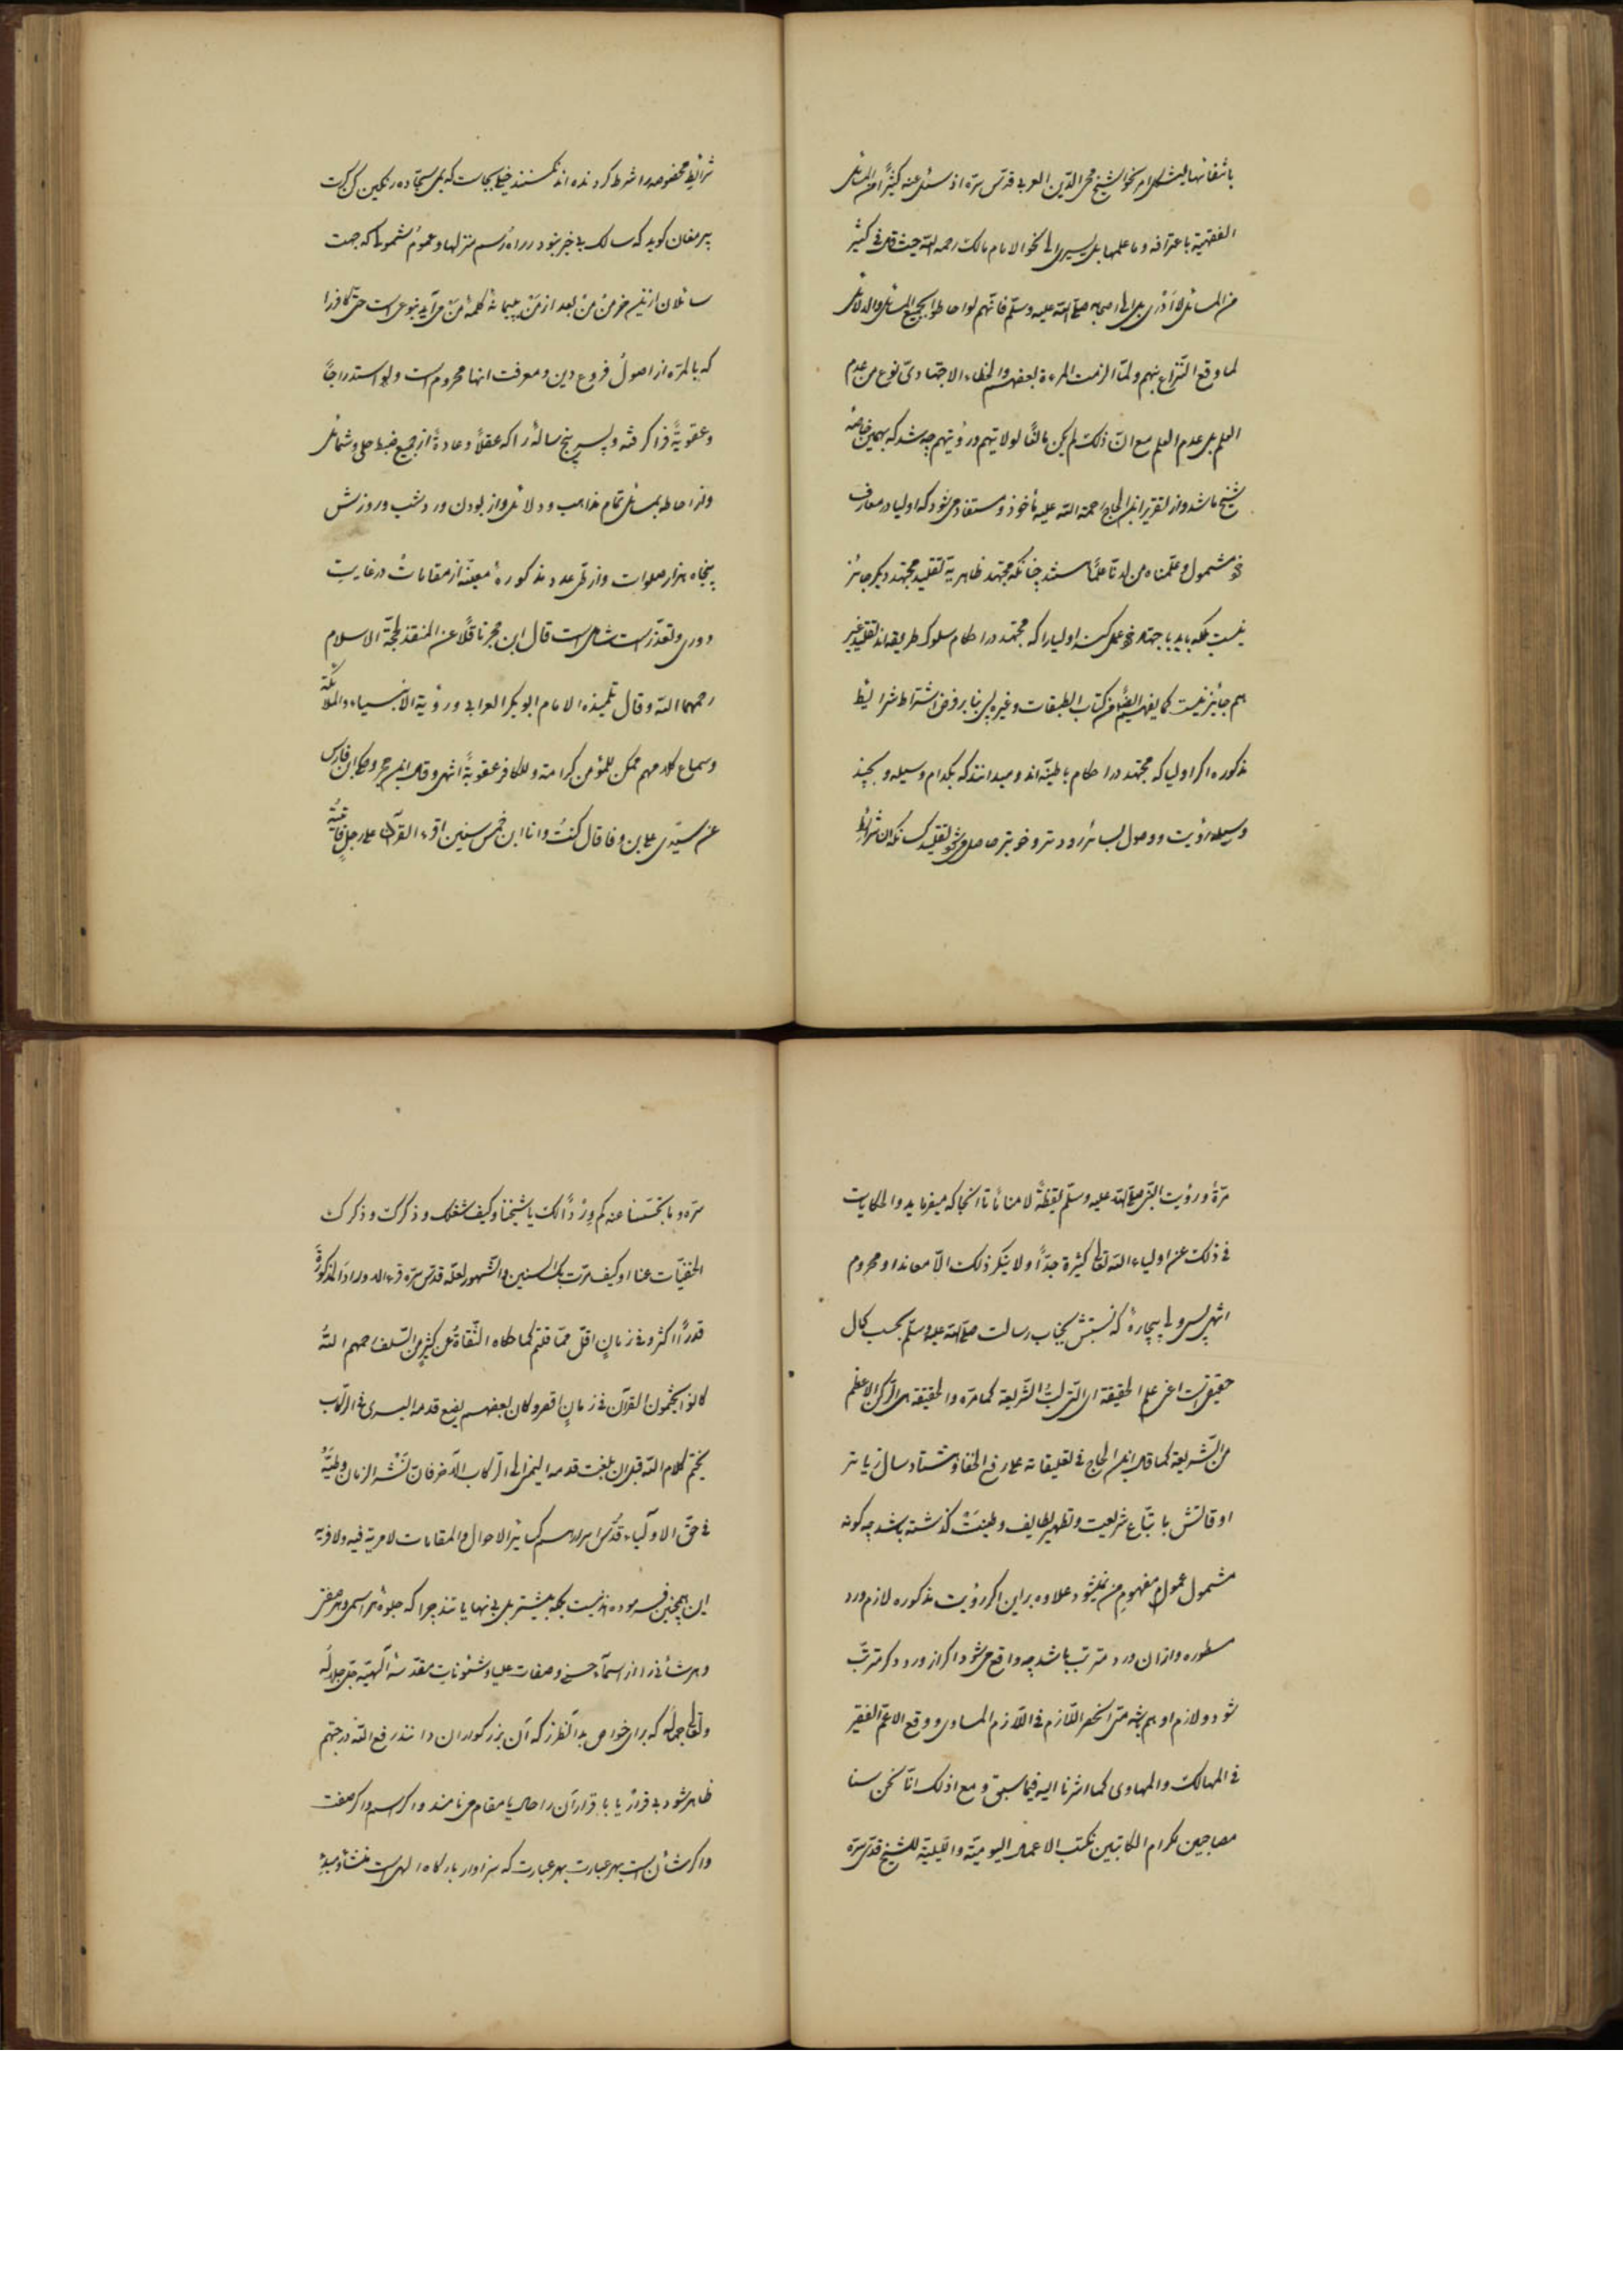 بانتفائها لیشکل امر نحو الشیخ محی الدین العربی قدس سره اذ سئل عنه کثیرًا من المسائل
الفقهیة باعترافه وما علمها بل یسری الی نحو الامام مالک رحمه الله حیث قال فی کثیر
من المسائل لا أدری بل الی اصحابه صلی الله علیه وسلم فانهم لو احاطوا بجمیع المسائل والدلائل
لما وقع التنزاع بینهم ولما الزمت المرءة بعضهم والخطاء الاجتهادی نوع من عدم
العلم بل عدم العلم مع ان ذلک لم یکن مانعًا لولایتهم ورؤیتهم چه شد که بهمین
شیخ باشد و از تقریر ابن الحاج رحمة الله علیه مأخوذ و مستفاد می‌شود که اولیا در معارف
مشمول وعلمناه من لدنا علمًا هستند چنانکه مجتهد ظاهر یه تقلید مجتهد دیکر جائز
نیست بلکه باید باجتهاد خود عمل کند اولیا را که مجتهد در احکام سلوک طریقه‌اند تقلید غیر
هم جائز نیست کما یفهم ایضًا من کتاب الطبقات وغیره پس بنا بر فرض اشتراط شرایط
مذکوره اکر اولیا که مجتهد در احکام باطنیه‌اند و میدانند که بکدام وسیله و بچند
وسیله رؤیت و وصول لسائر زودتر و خوبتر حاصل می‌شود تقلید کسانکه ان شرائط
شرائط مخصوصه را شرط کرده‌اند نکنند خیلی بجاست که بمی سجاده رنکین کن کرت
پیر مغان کوید که سالک بی خبر نبود در راه و رسم منزلها و عموم شمول که جهت
سائلان از نیم خرمن من بعد از من پیمانهٔ کلمهٔ من می‌آید بنوعی است حتی کافر را
که بالمره از اصول فروع دین و معرفت انها محروم است ولو استدراجًا
وعقوبةً فرا کرفته و پسر پنج ساله را که عقلًا وعادةً از جمیع ضبط حلی و شمائل
و از احاطه بمسائل تمام مذاهب و دلائل و از بودن ورد شب و روزش
پنجاه هزار صلوات و از طی عدد مذکورهٔ معینه از مقامات در غایت
دوری وتعذر است شامل است قال ابن حجر ناقلًا عن المنقذ لحجة الاسلام
رحمهما الله وقال تلمیذه الامام ابوبکر العرابی ورؤیة الانبیاء والملائکة
وسماع کلامهم ممکن للمؤمن کرامته وللکافر عقوبةً انتهی وقال ابن حجر وحکی ابن فارس
عن سیدی علی بن وفا قال کنتُ وانا ابن خمس سنین اقرء القرآن علی رجلٍ فاتیته
مرةً ورؤیت النبی صلی الله علیه وسلم یقظةً لا منامًا تا انجا که میفرماید والحکایات
فی ذلک عن اولیاء الله تعالی کثیرة جدًّا ولا ینکر ذلک الا معاند او محروم
انتهی پس ولی بیچارهٔ که نسبتش بجناب رسالت صلی الله علیه وسلم بحسب کمال
حقیقی است اعنی علم الحقیقة ای التی لبُّ الشریعة کما مره والحقیقة هی الرکن الاعظم
من الشریعة کما قال ابن الحاج فی تعلیقاته علی رفع الخفا و هشتاد سال زیاتر
اوقاتش باتباع شریعت و تطهیر لطایف و طینت کذشته باشد چه کونه
مشمول عموم مفهوم من نمیشود علاوه براین اکر رؤیت مذکوره لازم ورد
مسطوره و از ان ورد مترتب باشد چه واقع می‌شود اکر از ورد دکر مترتب
شود و لازم او هم باشد متی انحصر اللازم فی اللازم المساوی و وقع الاعم الفقیر
فی المهالک والمهاوی کما اشرنا الیه فیما سبق و مع اذلک انا نحن لسنا
مصاحبین لکرام الکاتبین نکتب الاعمال الیومیة واللیلیة للشیخ قدس سره
سره وما تجسسنا عنه کم وردًا لک یا شیخنا وکیف شغلک وذکرک وذکرک
الخفیات عنا او کیف مرت بک السنین والشهور لعله قدس سره قرء الاوراد المذکورة
قدرًا اکثر وفی زمانٍ اقل مما قلتم کما حکاه الثقاة عن کثیرٍ من السلف رحمهم الله
کانوا یختمون القرآن فی زمانٍ اقصر وکان بعضهم یضع قدمه الیسری فی الرکاب
یختم کلام الله قبل ان بلغت قدمه الیمنی الی الرکاب الآخر فان نشر الزمان وطیه
فی حق الاولیاء قدس اسرارهم کسائر الاحوال والمقامات لا مریة فیه ولا فریه
این همچنین فرموده‌اند نیست بلکه بیشتر بل بی نهایاتند چرا که جلوهٔ هر اسمی و هر صفتی
و هر شأنی را از اسماء حسنی و صفات علیا و شئونات مقدسهٔ الهیه جل جلاله
وتعالی جماله که برای خواص بدآنطرز که آن بزرکواران دانند رفع الله درجتهم
ظاهر شود بی قرار یا با قرار آن را حال یا مقام می‌نامند و اکر اسم و اکر صفت
و اکر شأن است بهر عبارت بهر عبارت که سزاوار بارکاه الهی است منشأ و مبدأ